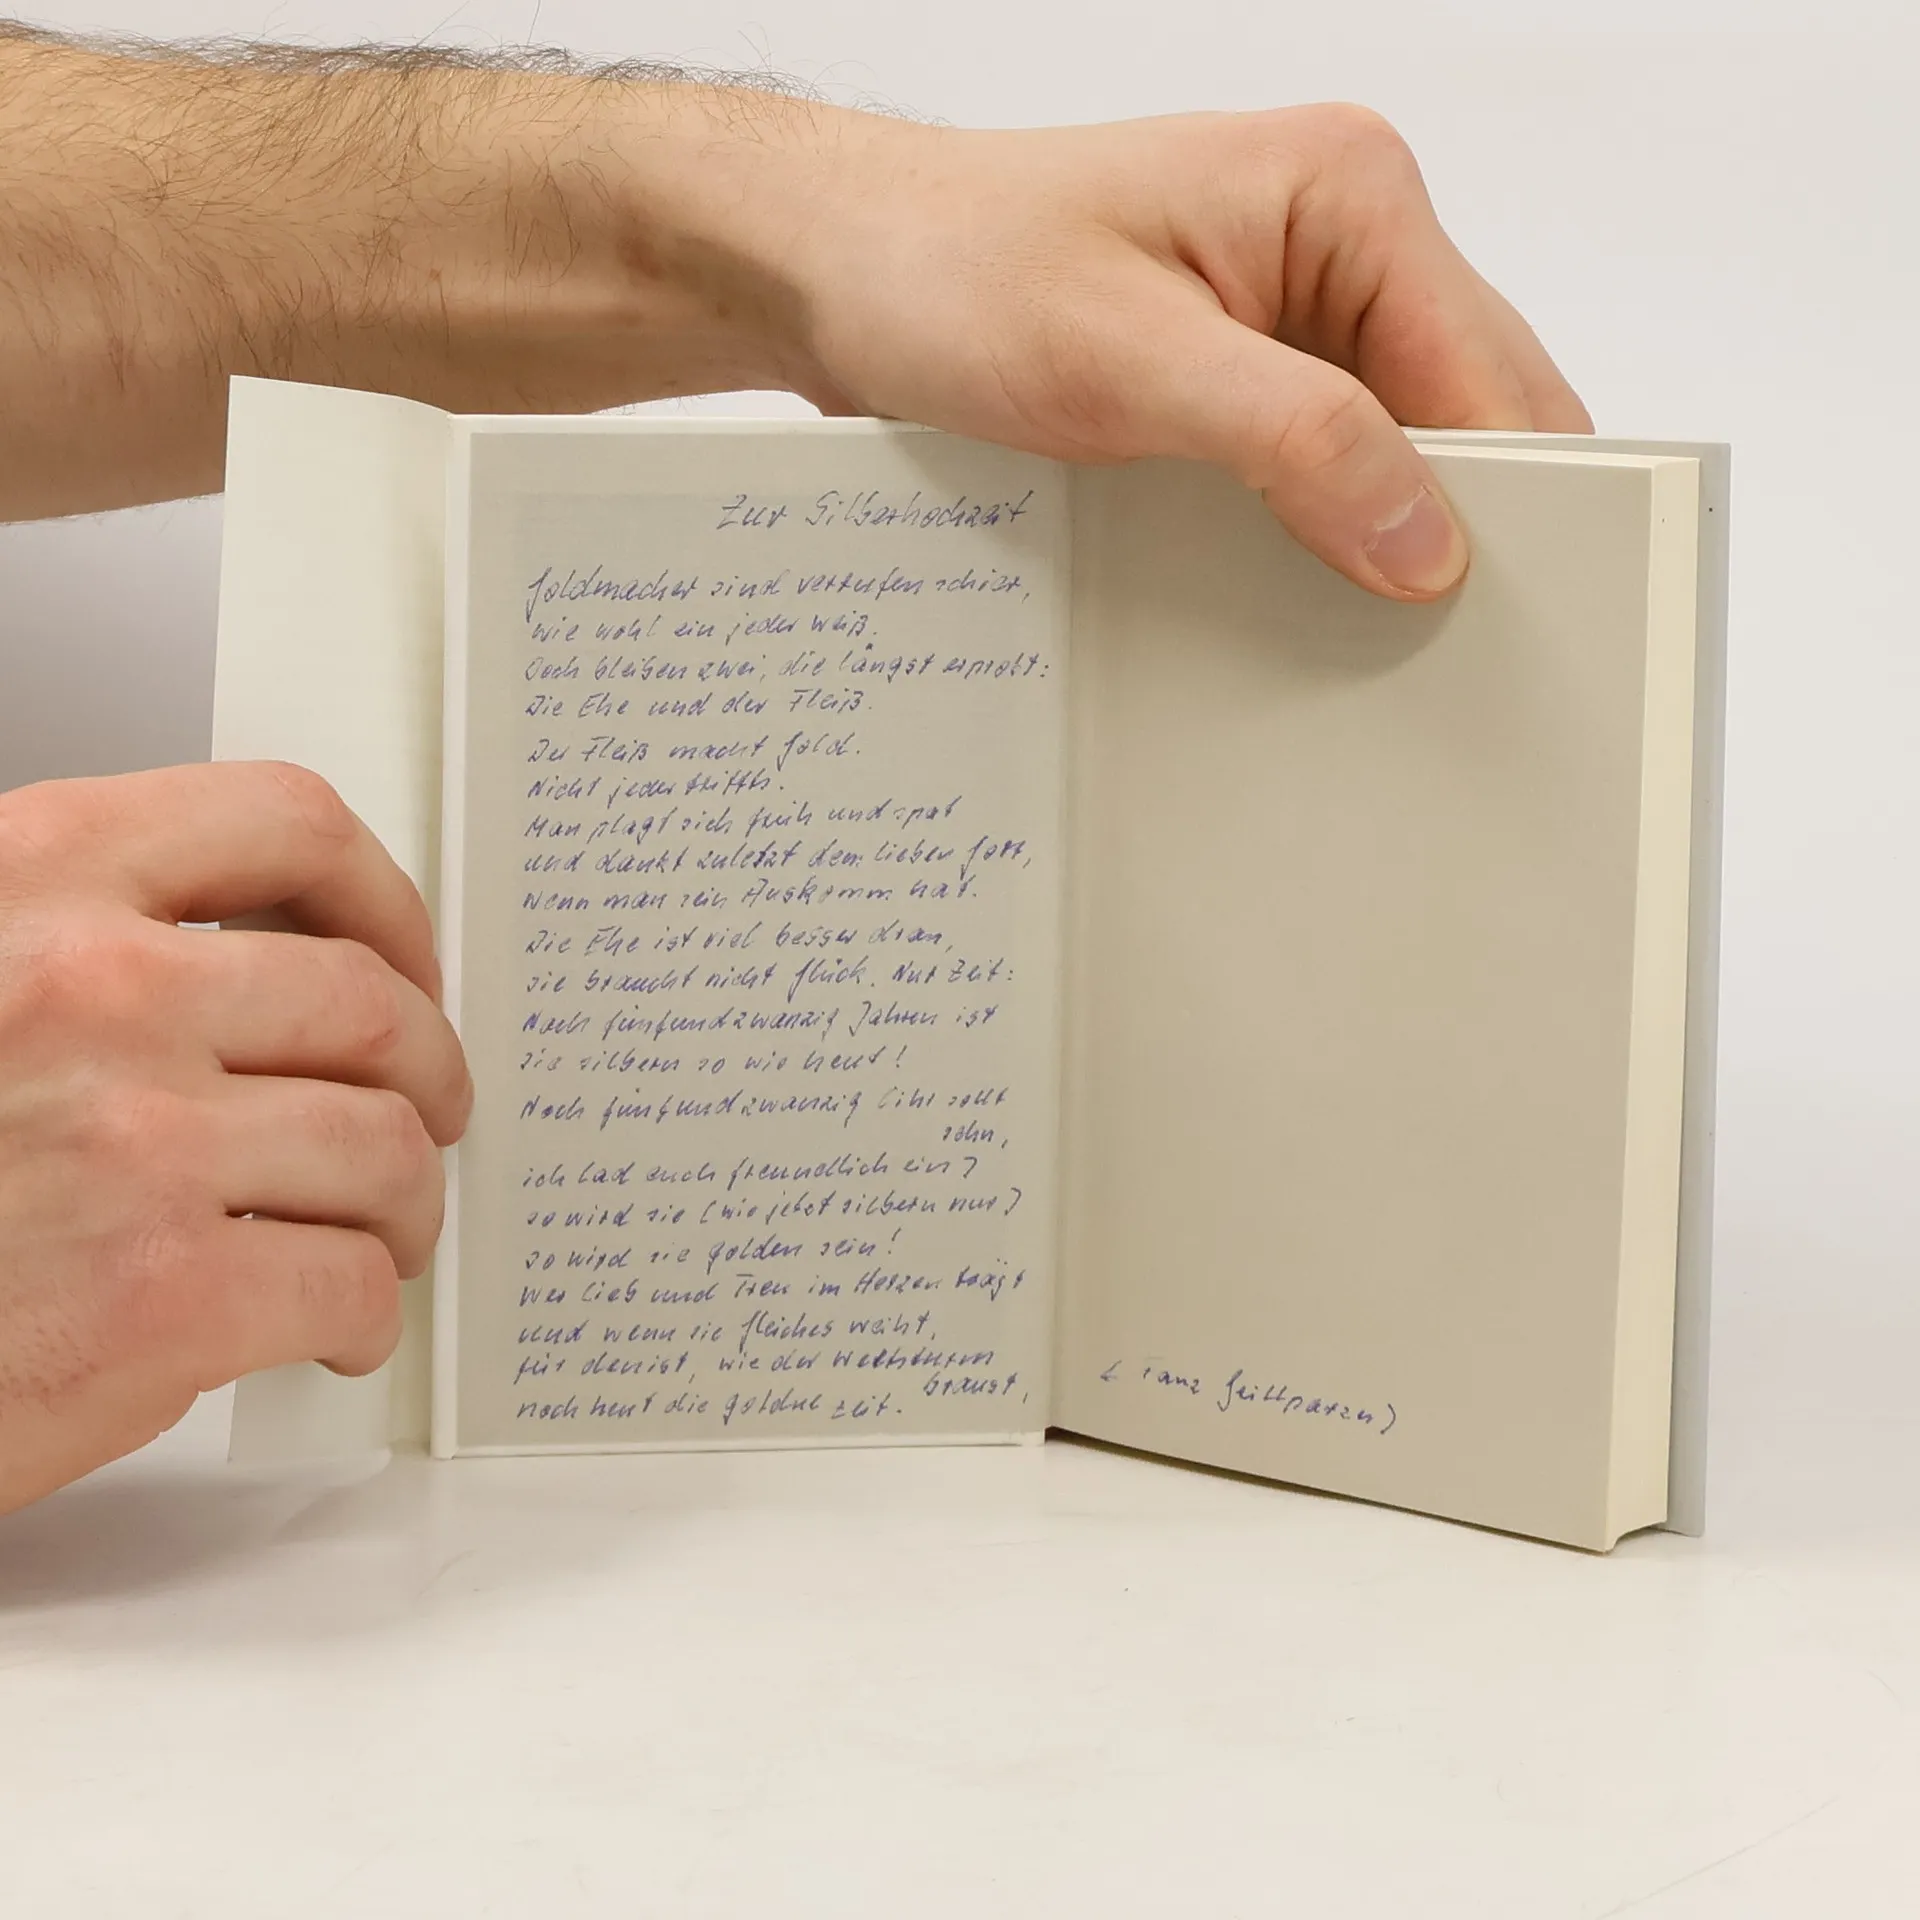 Zur Silberhochzeit
Goldmacher sind verrufen schier,
wie wohl ein jeder weiß.
Doch bleiben zwei, die längst erprobt:
Die Ehe und der Fleiß.
Der Fleiß macht Gold.
Nicht jeder triffts.
Man plagt sich früh und spat
und dankt zuletzt dem lieben Gott,
wenn man sein Auskomm hat.
Die Ehe ist viel besser dran,
sie braucht nicht Glück. Nur Zeit:
Nach fünfundzwanzig Jahren ist
sie silbern so wie heut!
Noch fünfundzwanzig (ihr sollt
sehn,
ich lad euch freundlich ein)
so wird sie (wie jetzt silbern nur)
so wird sie golden sein!
Wer Lieb und Treu im Herzen trägt
und wenn sie Gleiches weiht,
für den ist, wie der Weltsturm
braust,
noch heut die goldne Zeit.
(Franz Grillparzer)